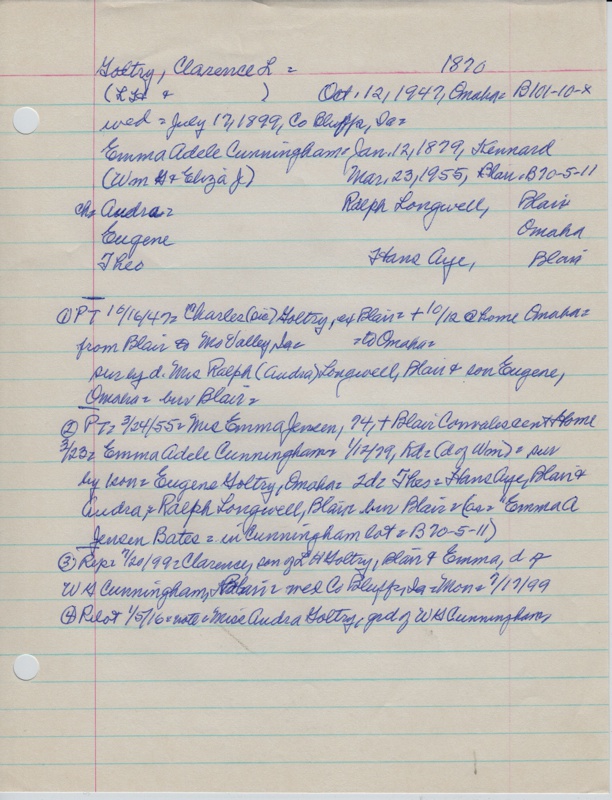 Goltry, Clarence L = 1870
(LH & ) Oct. 12, 1947, Omaha= B101-10-x
wed = July 17, 1899, Co Bluffs, Ia=
Emma Adele Cunningham= Jan. 12, 1879, Kennard
(Wm H & Eliza J) Mar. 23, 1955, Blair. B70-5-11
ch= Audra= Ralph Longwell, Blair
Eugene Omaha
Theo Hans Aye, Blair
① PT 10/16/47= Charles (sic) Goltry, ex Blair= + 10/12 @ home Omaha=
from Blair to Mo Valley, Ia= =to Omaha=
sur by d. Mrs Ralph (Audra) Longwell, Blair & son Eugene,
Omaha= bur Blair=
② PT= 3/24/55= Mrs Emma Jensen, 74, + Blair Convalescent Home
3/23= Emma Adele Cunningham= 1/12/79, Kd= (d of Wm)= sur
by 1 son= Eugene Goltry, Omaha= 2d= Theo= Hans Aye, Blair &
Audra= Ralph Longwell, Blair bur Blair= (as= "Emma A
Jensen Bates= in Cunningham lot= B70-5-11)
③ Rep= 7/20/99= Clarence, son of L H Goltry, Blair & Emma, d of
W H Cunningham, Blair= wed Co Bluffs, Ia= Mon= 7/17/99
④ Pilot 1/5/16= note= Miss Audra Goltry, grd of W H Cunningham,